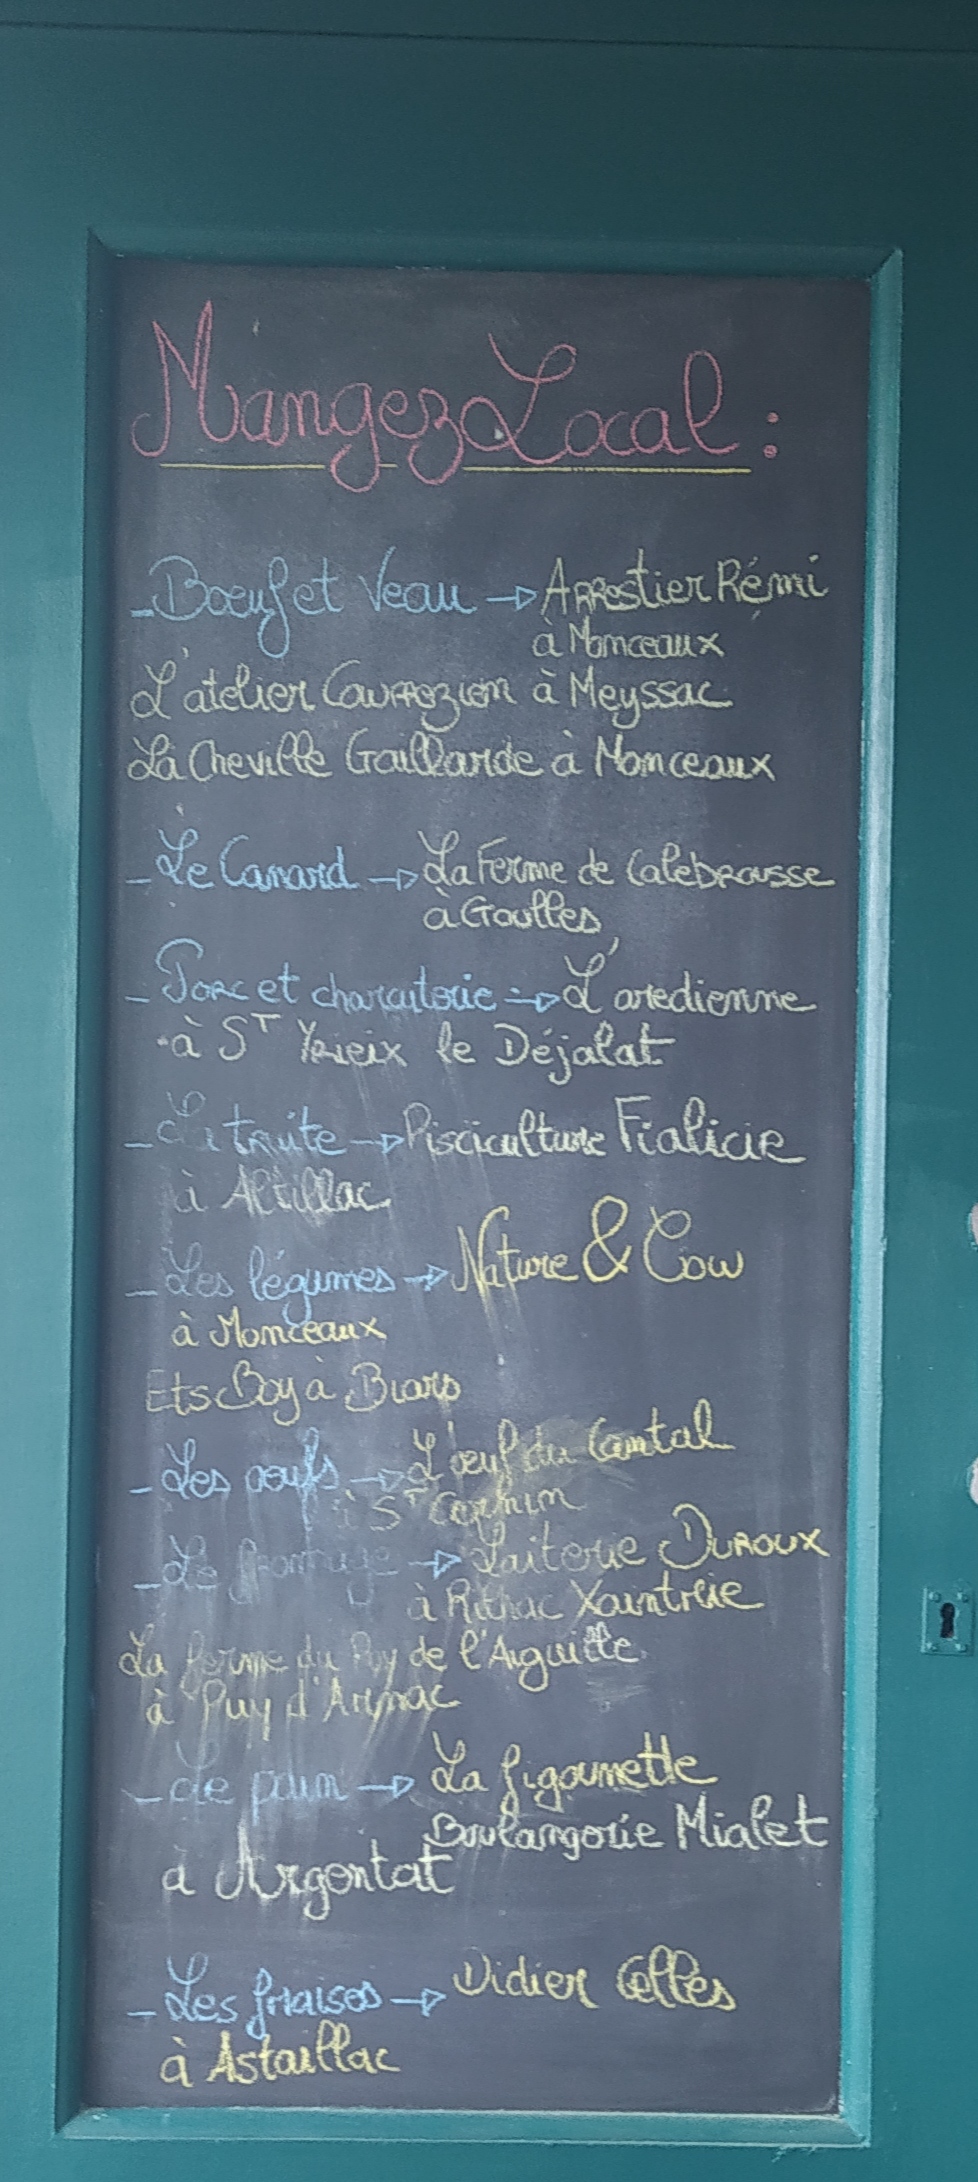 Mangez Local :
- Boeuf et Veau → Arrestier Rémi
à Monceaux
L'atelier Caurrezien à Meyssac
La Cheville Gaillarde à Monceaux
- Le Canard → La Ferme de Calebrousse
à Goulles
- Porc et charcuterie → L'aredienne
à ST Yrieix le Déjalat
- La truite → Pisciculture Fialicie
à Altillac
- Les légumes → Nature & Cow
à Monceaux
Ets Boy à Biars
- Les oeufs → L'oeuf du Cantal
à ST Cernin
- Le fromage → Laiterie Duroux
à Rilhac Xaintrie
La ferme du Puy de l'Aiguille
à Puy d'Arnac
- Le pain → La figounette
Boulangerie Mialet
à Argentat
- Les fraises → Didier Celles
à Astaillac